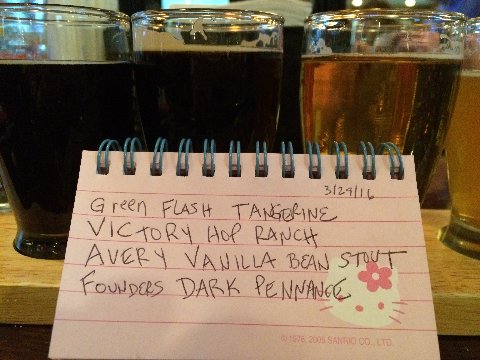 3/29/16
Green FLASH TANGERINE
VICTORY HOP RANCH
AVERY VANILLA BEAN STOUT
FOUNDERS DARK PENNANCE
© 1976, 2005 SANRIO CO., LTD.